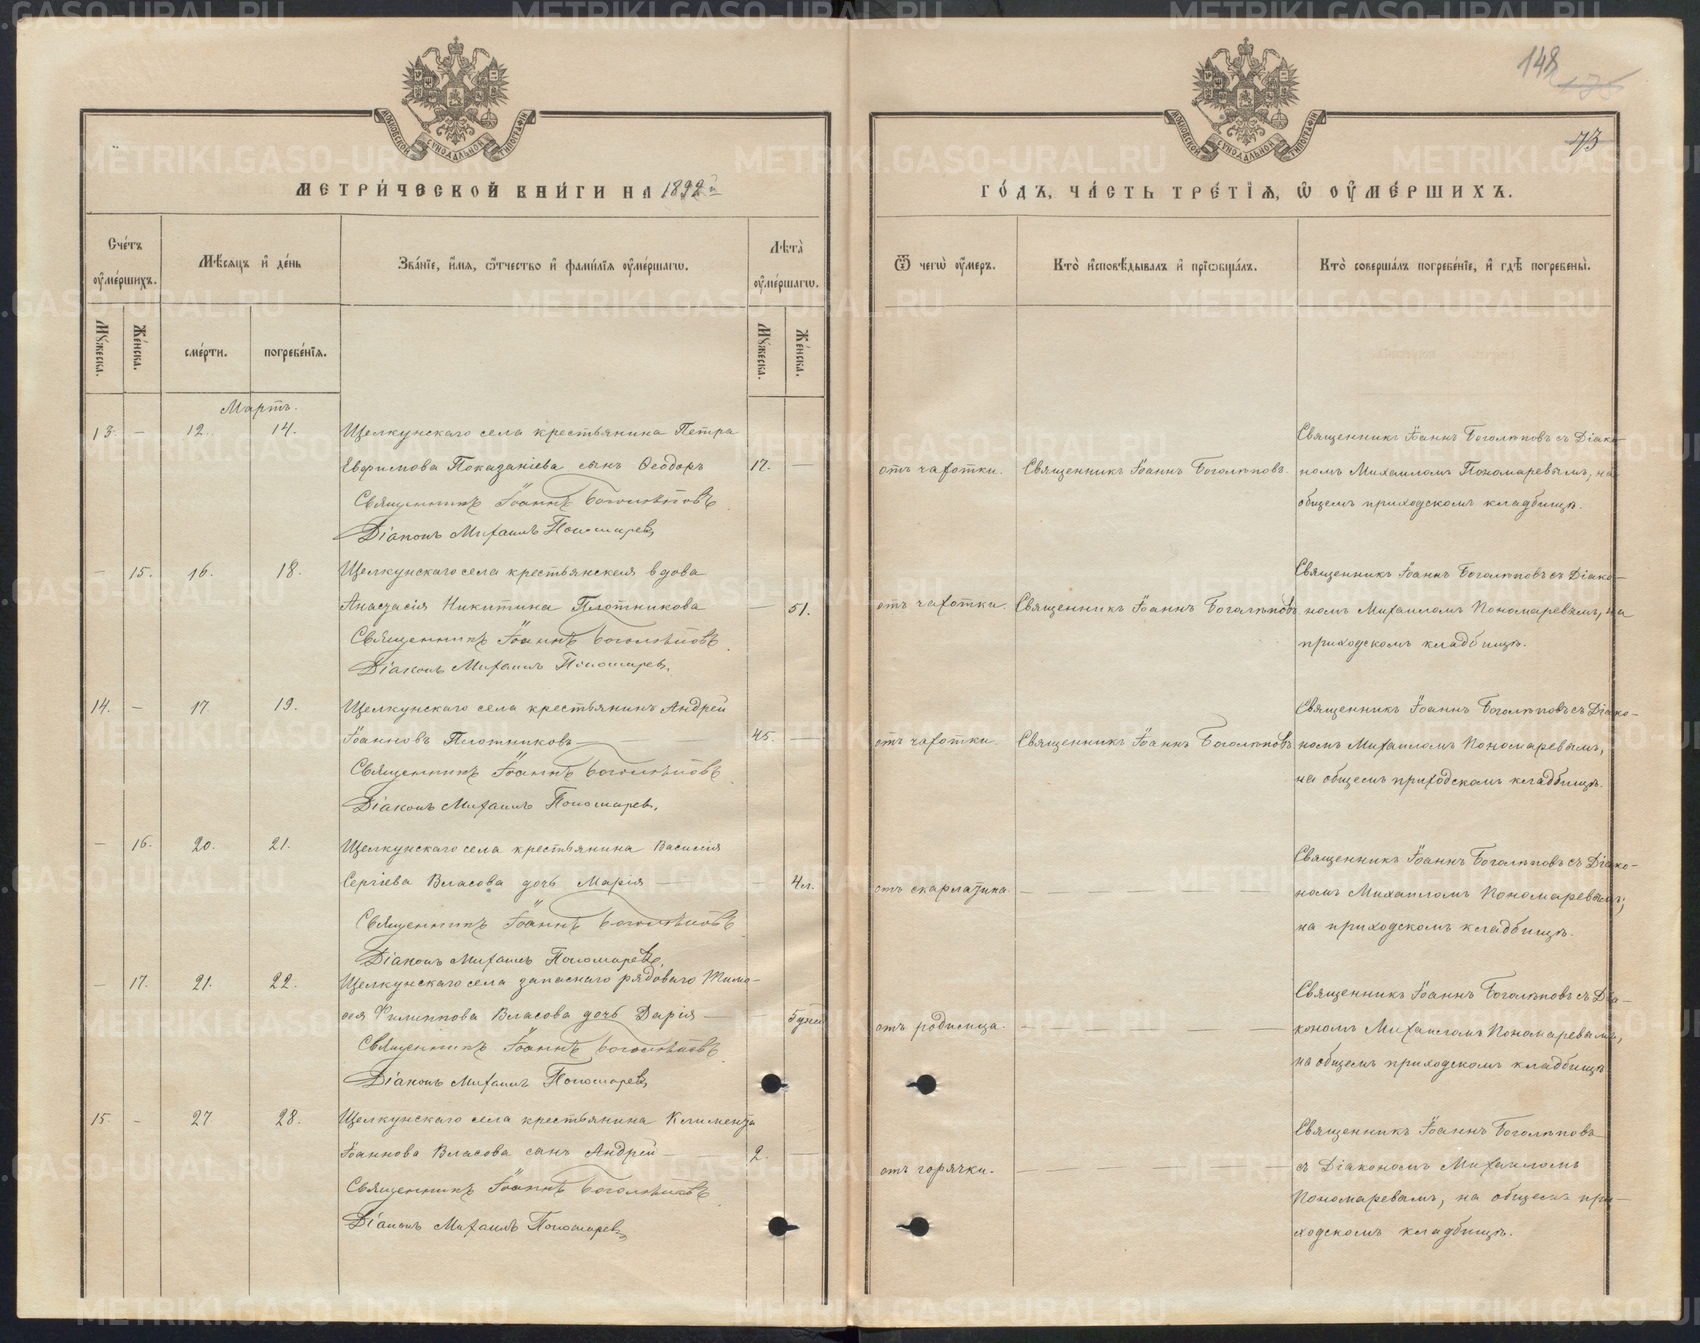 148
175
73
МЕТРИ́ЧЕСКОЙ КНИ́ГИ НА 1892й
ГО́ДЪ, ЧА́СТЬ ТРЕ́ТІѦ, Ѡ ОУМЕ́РШИХЪ.
Сче́тъ оуме́ршихъ.
Мѣ́сяцъ и де́нь
Зва́нїе, и́мя, о́тчество и фами́лїя оуме́ршагѡ.
Лѣта̀ оуме́ршагѡ.
Ѿ чегѡ̀ оу́меръ.
Кто̀ исповѣ́дывалъ и прїѡбща́лъ.
Кто̀ соверша́лъ погребе́нїе, и гдѣ̀ погребены̀.
Му́жеска.
Же́нска.
сме́рти.
погребе́нїя.
Му́жеска.
Же́нска.
Мартъ.
13. – 12. 14. Щелкунскаго села крестьянина Петра
Евфимова Показаніева сынъ Ѳеодоръ 17. –
Священникъ Іоаннъ Боголѣповъ
Діаконъ Михаилъ Пономаревъ
отъ чахотки. Священникъ Іоаннъ Боголѣповъ.
Священникъ Іоаннъ Боголѣповъ съ Діако-
номъ Михаиломъ Пономаревымъ, на
общемъ приходскомъ кладбищѣ.
– 15. 16. 18. Щелкунскаго села крестьянская вдова
Анастасія Никитина Плотникова – 51.
Священникъ Іоаннъ Боголѣповъ
Діаконъ Михаилъ Пономаревъ
отъ чахотки. Священникъ Іоаннъ Боголѣповъ
Священникъ Іоаннъ Боголѣповъ съ Діако-
номъ Михаиломъ Пономаревымъ, на
приходскомъ кладбищѣ.
14. – 17 19. Щелкунскаго села крестьянинъ Андрей
Іоанновъ Плотниковъ 45 –
Священникъ Іоаннъ Боголѣповъ
Діаконъ Михаилъ Пономаревъ
отъ чахотки. Священникъ Іоаннъ Боголѣповъ
Священникъ Іоаннъ Боголѣповъ съ Діако-
номъ Михаиломъ Пономаревымъ,
на общемъ приходскомъ кладбищѣ.
– 16. 20. 21. Щелкунскаго села крестьянина Василія
Сергіева Власова дочь Марія – 4 л.
Священникъ Іоаннъ Боголѣповъ
Діаконъ Михаилъ Пономаревъ
отъ скарлатина. – – – –
Священникъ Іоаннъ Боголѣповъ съ Діако-
номъ Михаиломъ Пономаревымъ,
на приходскомъ кладбищѣ.
– 17. 21. 22. Щелкунскаго села запаснаго рядоваго Тимо-
ѳея Филиппова Власова дочь Дарія – 5 дней
Священникъ Іоаннъ Боголѣповъ
Діаконъ Михаилъ Пономаревъ
отъ родимица. – – – –
Священникъ Іоаннъ Боголѣповъ съ Діа-
кономъ Михаиломъ Пономаревымъ,
на общемъ приходскомъ кладбищѣ
15. – 27. 28. Щелкунскаго села крестьянина Климента
Іоаннова Власова сынъ Андрей – 2. –
Священникъ Іоаннъ Боголѣповъ
Діаконъ Михаилъ Пономаревъ
отъ горячки. – – – –
Священникъ Іоаннъ Боголѣповъ
съ Діакономъ Михаиломъ
Пономаревымъ, на общемъ при-
ходскомъ кладбищѣ.
METRIKI.GASO-URAL.RU